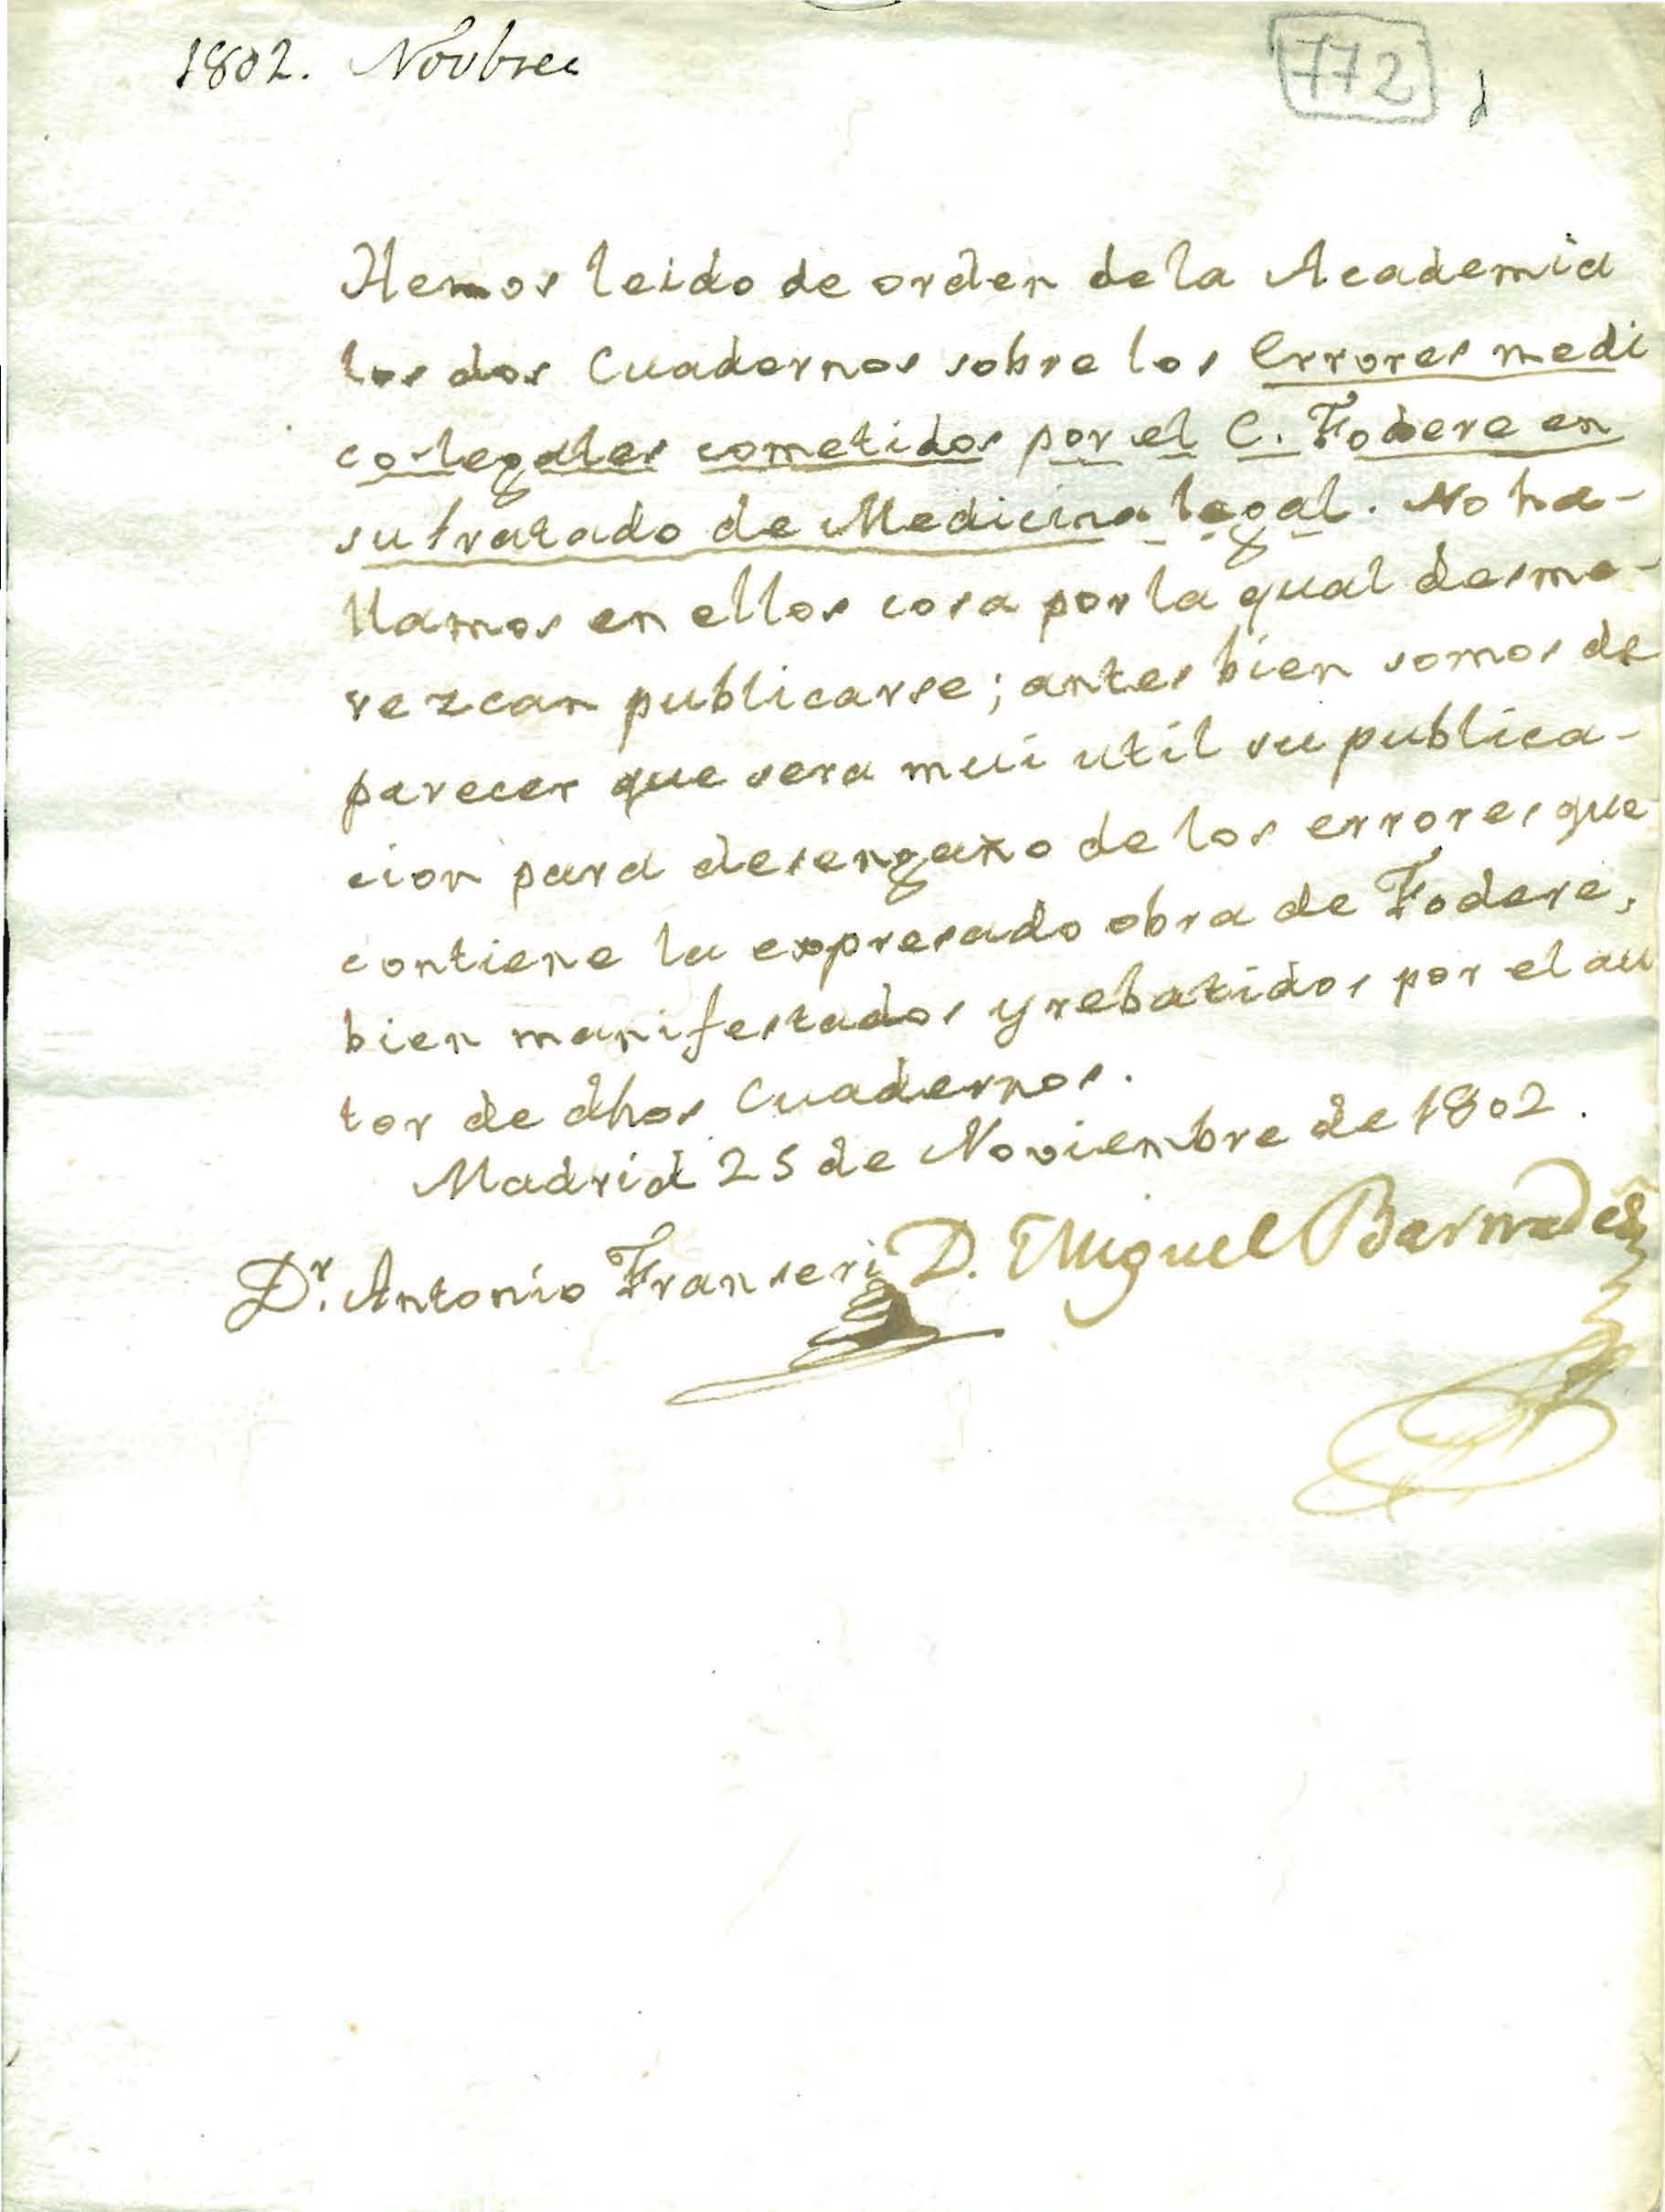 1802. Novbre
772
Hemos leido de orden de la Academia
los dos Cuadernos sobre los Errores medi
co-legales cometidos por el C. Fodere en
su tratado de Medicina legal. No ha-
llamos en ellos cosa por la qual desme-
rezcan publicarse; antes bien somos de
parecer que sera mui util su publica-
cion para desengaño de los errores que
contiene la expresado obra de Fodere,
bien manifestados y rebatidos por el au
tor de dhos Cuadernos.
Madrid 25 de Noviembre de 1802.
Dr. Antonio Franseri D. Miguel Barnades